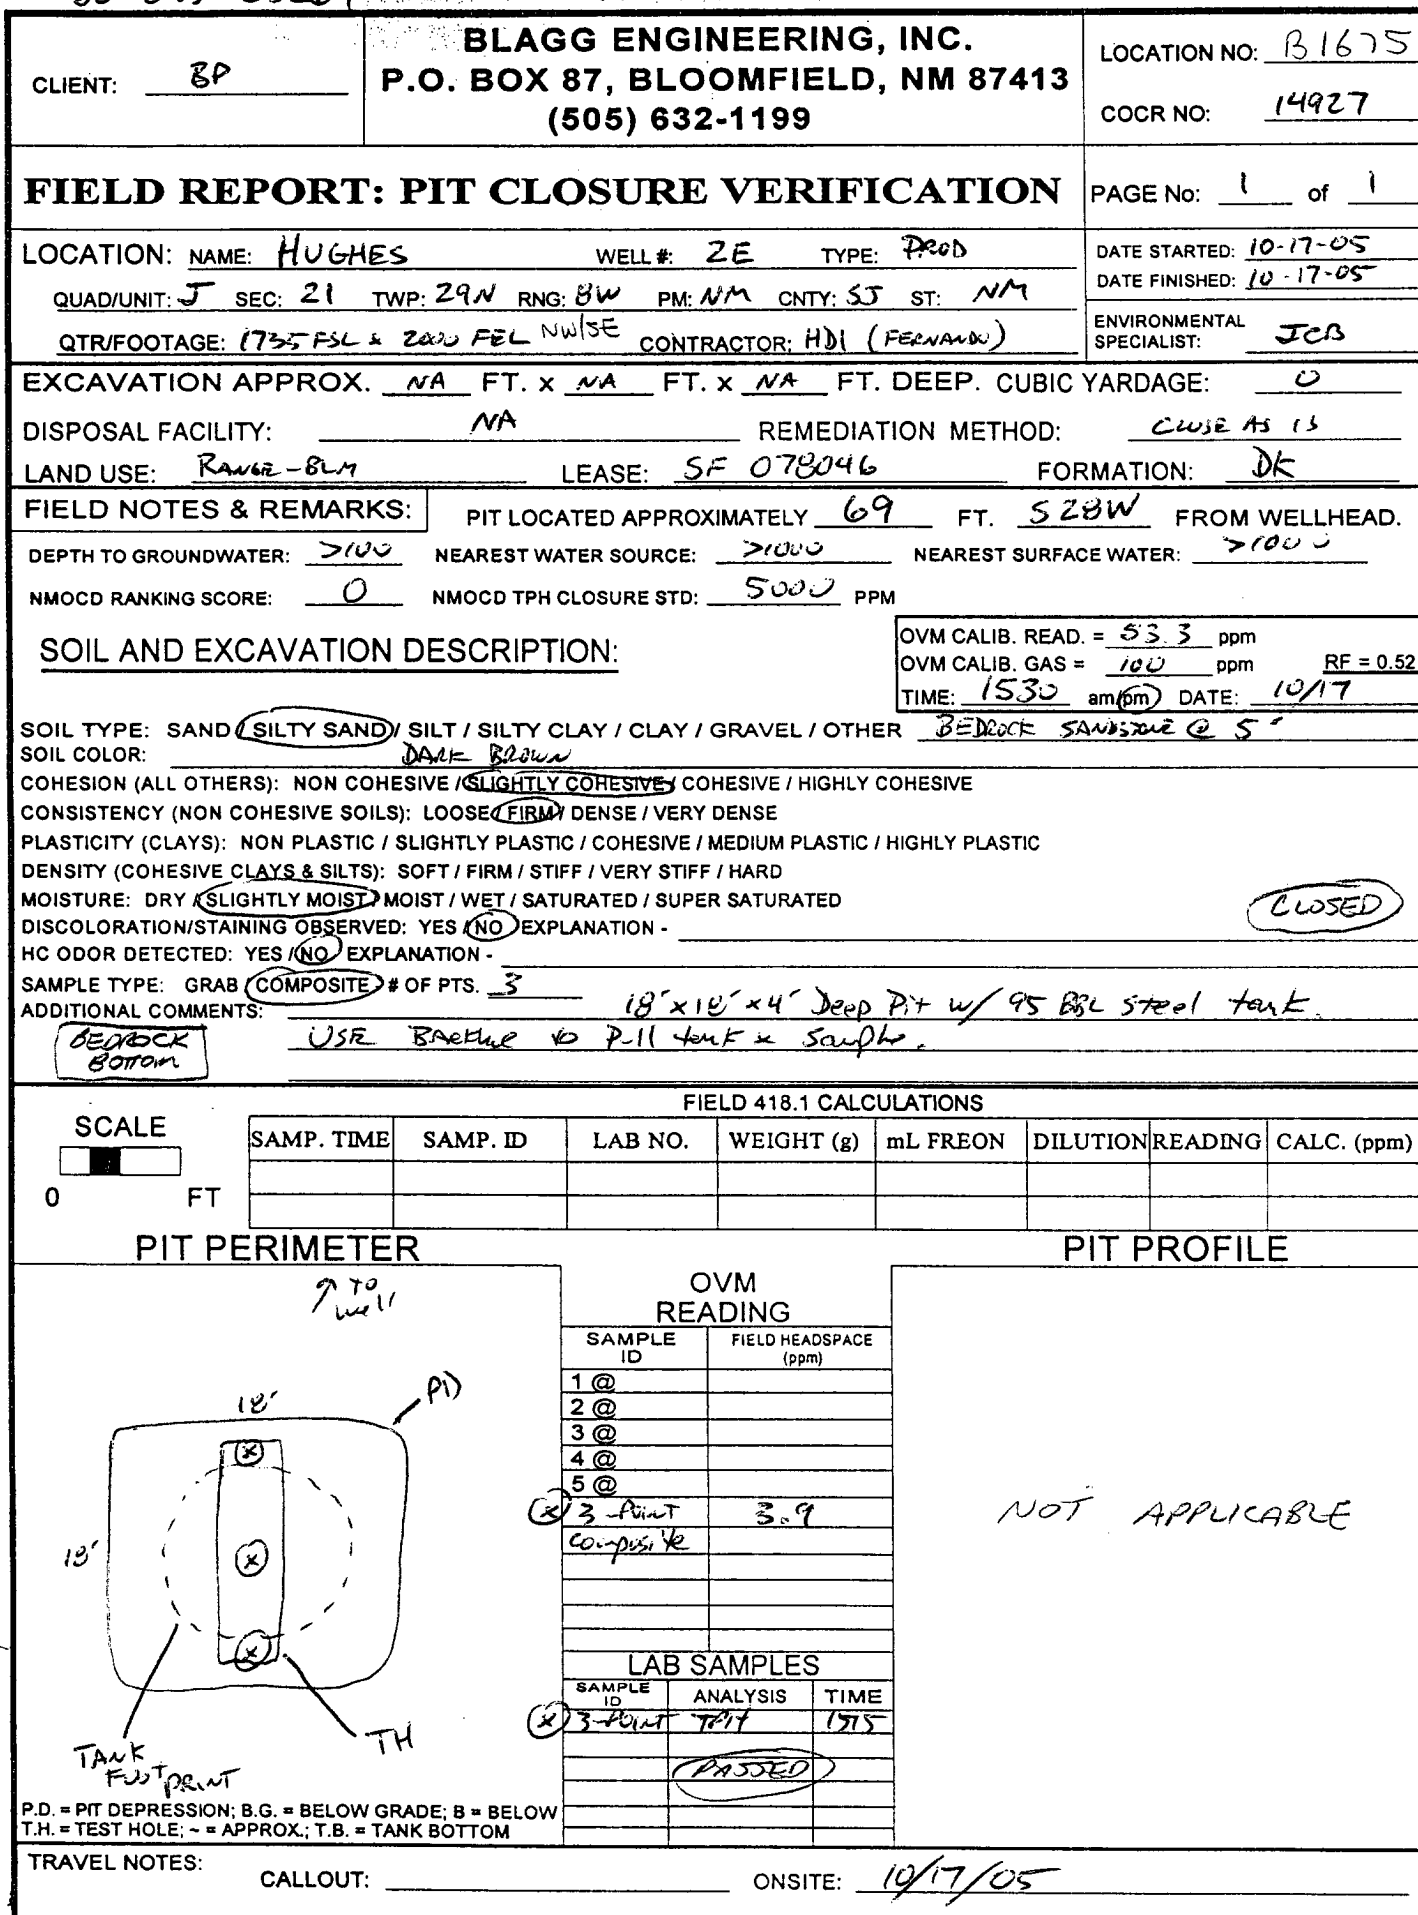 BLAGG ENGINEERING, INC.
P.O. BOX 87, BLOOMFIELD, NM 87413
(505) 632-1199
CLIENT: BP
LOCATION NO: B1675
COCR NO: 14927
FIELD REPORT: PIT CLOSURE VERIFICATION
PAGE No: 1 of 1
LOCATION: NAME: HUGHES WELL #: 2E TYPE: PROD
DATE STARTED: 10-17-05
DATE FINISHED: 10-17-05
QUAD/UNIT: J SEC: 21 TWP: 29N RNG: 8W PM: NM CNTY: SJ ST: NM
QTR/FOOTAGE: 1735 FSL & 2000 FEL NW/SE CONTRACTOR: HDI (FERNANDO)
ENVIRONMENTAL SPECIALIST: JCB
EXCAVATION APPROX. NA FT. x NA FT. x NA FT. DEEP. CUBIC YARDAGE: 0
DISPOSAL FACILITY: NA REMEDIATION METHOD: CLOSE AS IS
LAND USE: RANGE-BLM LEASE: SF 078046 FORMATION: DK
FIELD NOTES & REMARKS: PIT LOCATED APPROXIMATELY 69 FT. S28W FROM WELLHEAD.
DEPTH TO GROUNDWATER: >100 NEAREST WATER SOURCE: >1000 NEAREST SURFACE WATER: >1000
NMOCD RANKING SCORE: 0 NMOCD TPH CLOSURE STD: 5000 PPM
SOIL AND EXCAVATION DESCRIPTION:
OVM CALIB. READ. = 53.3 ppm
OVM CALIB. GAS = 100 ppm RF = 0.52
TIME: 1530 am/pm DATE: 10/17
SOIL TYPE: SAND / SILTY SAND / SILT / SILTY CLAY / CLAY / GRAVEL / OTHER BEDROCK SANDSTONE @ 5'
SOIL COLOR: DARK BROWN
COHESION (ALL OTHERS): NON COHESIVE / SLIGHTLY COHESIVE / COHESIVE / HIGHLY COHESIVE
CONSISTENCY (NON COHESIVE SOILS): LOOSE / FIRM / DENSE / VERY DENSE
PLASTICITY (CLAYS): NON PLASTIC / SLIGHTLY PLASTIC / COHESIVE / MEDIUM PLASTIC / HIGHLY PLASTIC
DENSITY (COHESIVE CLAYS & SILTS): SOFT / FIRM / STIFF / VERY STIFF / HARD
MOISTURE: DRY / SLIGHTLY MOIST / MOIST / WET / SATURATED / SUPER SATURATED
CLOSED
DISCOLORATION/STAINING OBSERVED: YES / NO EXPLANATION -
HC ODOR DETECTED: YES / NO EXPLANATION -
SAMPLE TYPE: GRAB / COMPOSITE # OF PTS. 3
ADDITIONAL COMMENTS: 18' x 18' x 4' Deep Pit w/ 95 BBL steel tank.
BEDROCK BOTTOM
USE Backhoe to Pull tank & Sample.
FIELD 418.1 CALCULATIONS
SCALE
0 FT
SAMP. TIME SAMP. ID LAB NO. WEIGHT (g) mL FREON DILUTION READING CALC. (ppm)
PIT PERIMETER
PIT PROFILE
TO well
PD
18'
18'
TANK FOOTPRINT
TH
OVM READING
SAMPLE ID FIELD HEADSPACE (ppm)
1 @
2 @
3 @
4 @
5 @
3-Point 3.9
composite
NOT APPLICABLE
LAB SAMPLES
SAMPLE ID ANALYSIS TIME
3-Point TPH 1515
PASSED
P.D. = PIT DEPRESSION; B.G. = BELOW GRADE; B = BELOW
T.H. = TEST HOLE; ~ = APPROX.; T.B. = TANK BOTTOM
TRAVEL NOTES:
CALLOUT: ONSITE: 10/17/05